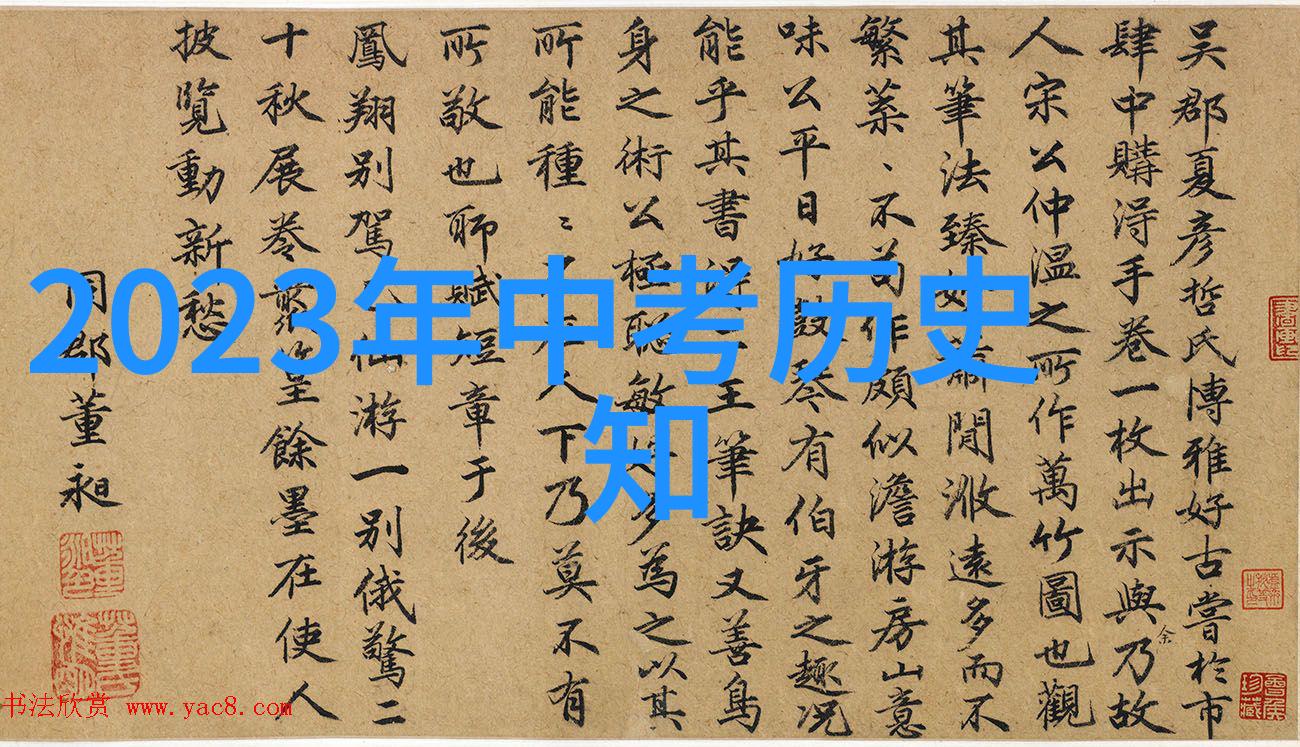 吴郡夏彦哲氏博雅好古嘗於市
肆中購得手卷一枚出示與余乃故
人宋公仲温之所作萬竹圖也觀
其筆法臻妙蕭閒遠多而不
繁葉、不苟作頗似澹游房山意
味公平日好鼓琴有伯牙之趣况
能乎其書王筆訣又善鳥
身之術公極聰敏多為之以其
所能種〻人下乃莫不有
所敬也聊賦短章于後
鳳翔别駕仙游一别俄驚二
十秋展卷餘墨在使人
披覽動新愁
同郡董昶
2023年中考历史
知
书法欣赏 www.yac8.com